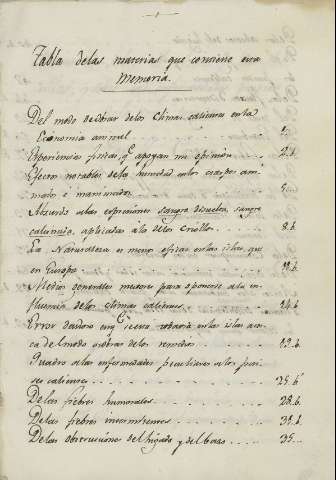 Tabla delas materias que contiene esta
Memoria.
Del modo de obrar delos Climas calientes en la
Economia animal
Experiencias fisicas q.e apoyan mi opinion 2.b.
Efectos notables dela humedad en los cuerpos ani-
mados é inanimados 5.
Absurdo alas expresiones sangre disuelta, sangre
calcinada, aplicadas alos Criollos. 8.b.
La Naturaleza es menos eficaz en las islas que
en Europa
Medios generales mejores para oponerse ala in-
fluencia delos climas calientes 14.b.
Error en q.e se en las islas acer-
ca del modo de obrar delos remedios
Quadro alas enfermedades peculiares alos pai-
ses calientes 25.b.
Delas fiebres humorales 28.b.
Delas fiebres intermitentes 31.b.
Delas obstrucciones del higado y del bazo 35